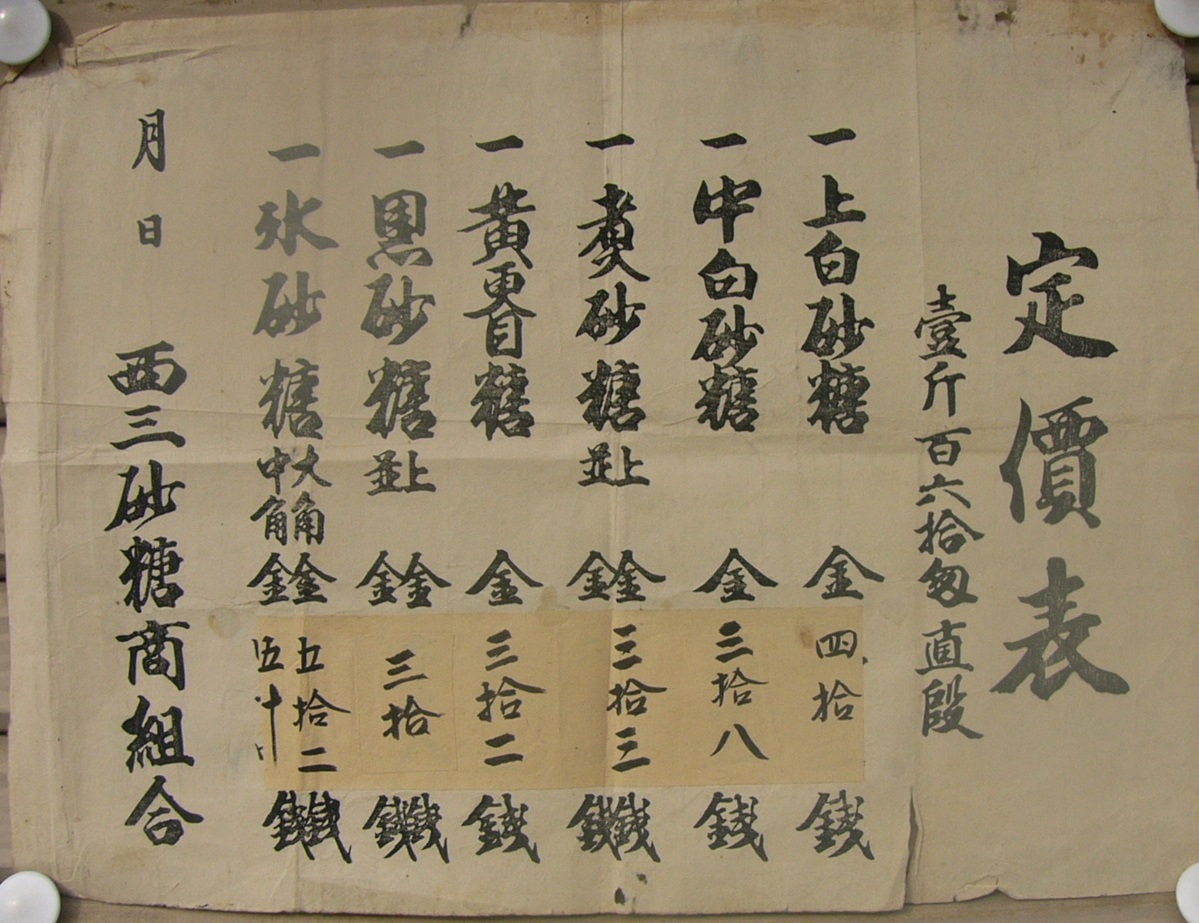 定價表
壹斤百六拾匁直段
一上白砂糖 金四拾錢
一中白砂糖 金三拾八錢
一煑砂糖 上並 金金三拾三錢錢
一黄更目糖 金三拾二錢
一黒砂糖 上並 金金三拾錢錢
一氷砂糖 大角中角 金金五拾二五十錢錢
月日 西三砂糖商組合